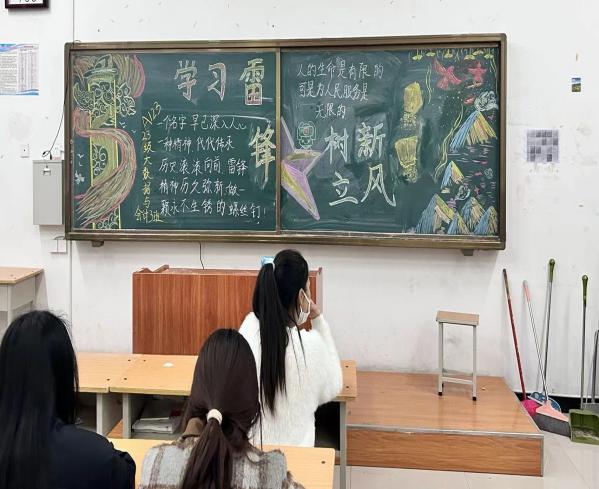 学习雷
锋
A1123
23级大数据与
会计3班
一个名字 早已深入人心
一种精神 代代传承
历史滚滚向前 雷锋
精神历久弥新 做一
颗永不生锈的螺丝钉!
人的生命是有限的
可是为人民服务是
无限的
树新
立风